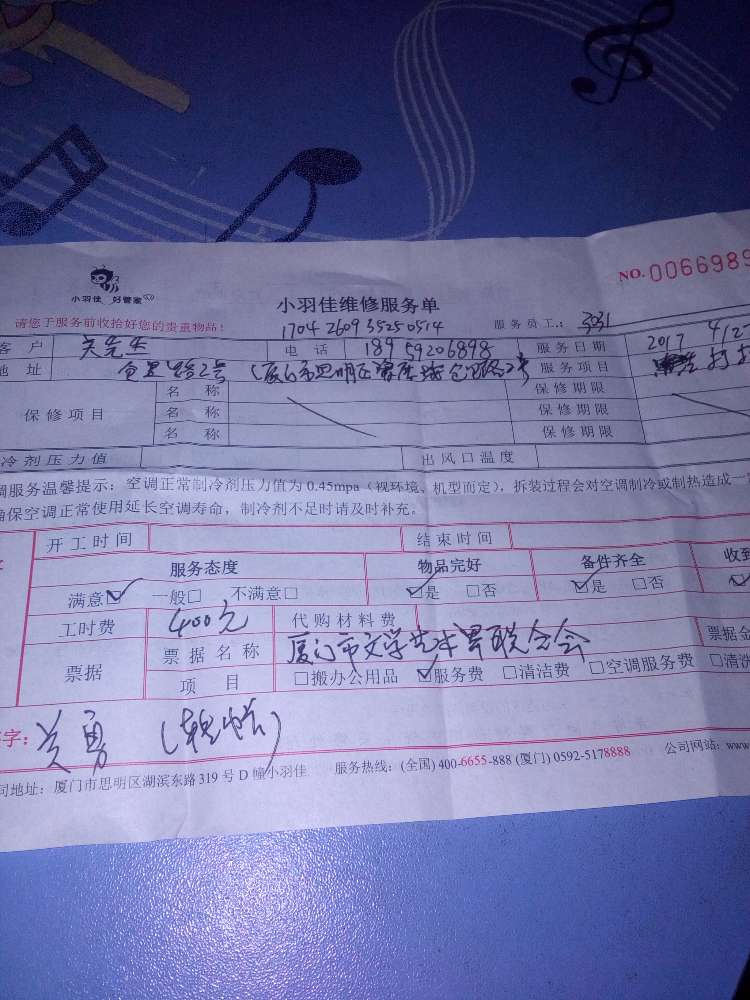 小羽佳 好管家
NO.0066989
小羽佳维修服务单
请您于服务前收拾好您的贵重物品！
1704 2609 3525 0514 服务员工：3031
客 户 关先生 电 话 18959206898 服务日期 2017 4/2
地 址 2号 服务项目
保修项目 名 称 保修期限
名 称 保修期限
名 称 保修期限
冷剂压力值 出风口温度
调服务温馨提示：空调正常制冷剂压力值为 0.45mpa（视环境、机型而定），拆装过程会对空调制冷或制热造成一
确保空调正常使用延长空调寿命，制冷剂不足时请及时补充。
开工时间 结束时间
服务态度 物品完好 备件齐全 收到
满意☑ 一般□ 不满意□ ☑是 □否 ☑是 □否
工时费 400元 代购材料费
票据 票据名称 厦门市文学艺术界联合会 票据金
项 目 □搬办公用品 ☑服务费 □清洁费 □空调服务费 □清洗
字：关勇
司地址：厦门市思明区湖滨东路319号D幢小羽佳 服务热线：(全国) 400-6655-888 (厦门) 0592-5178888 公司网站：www